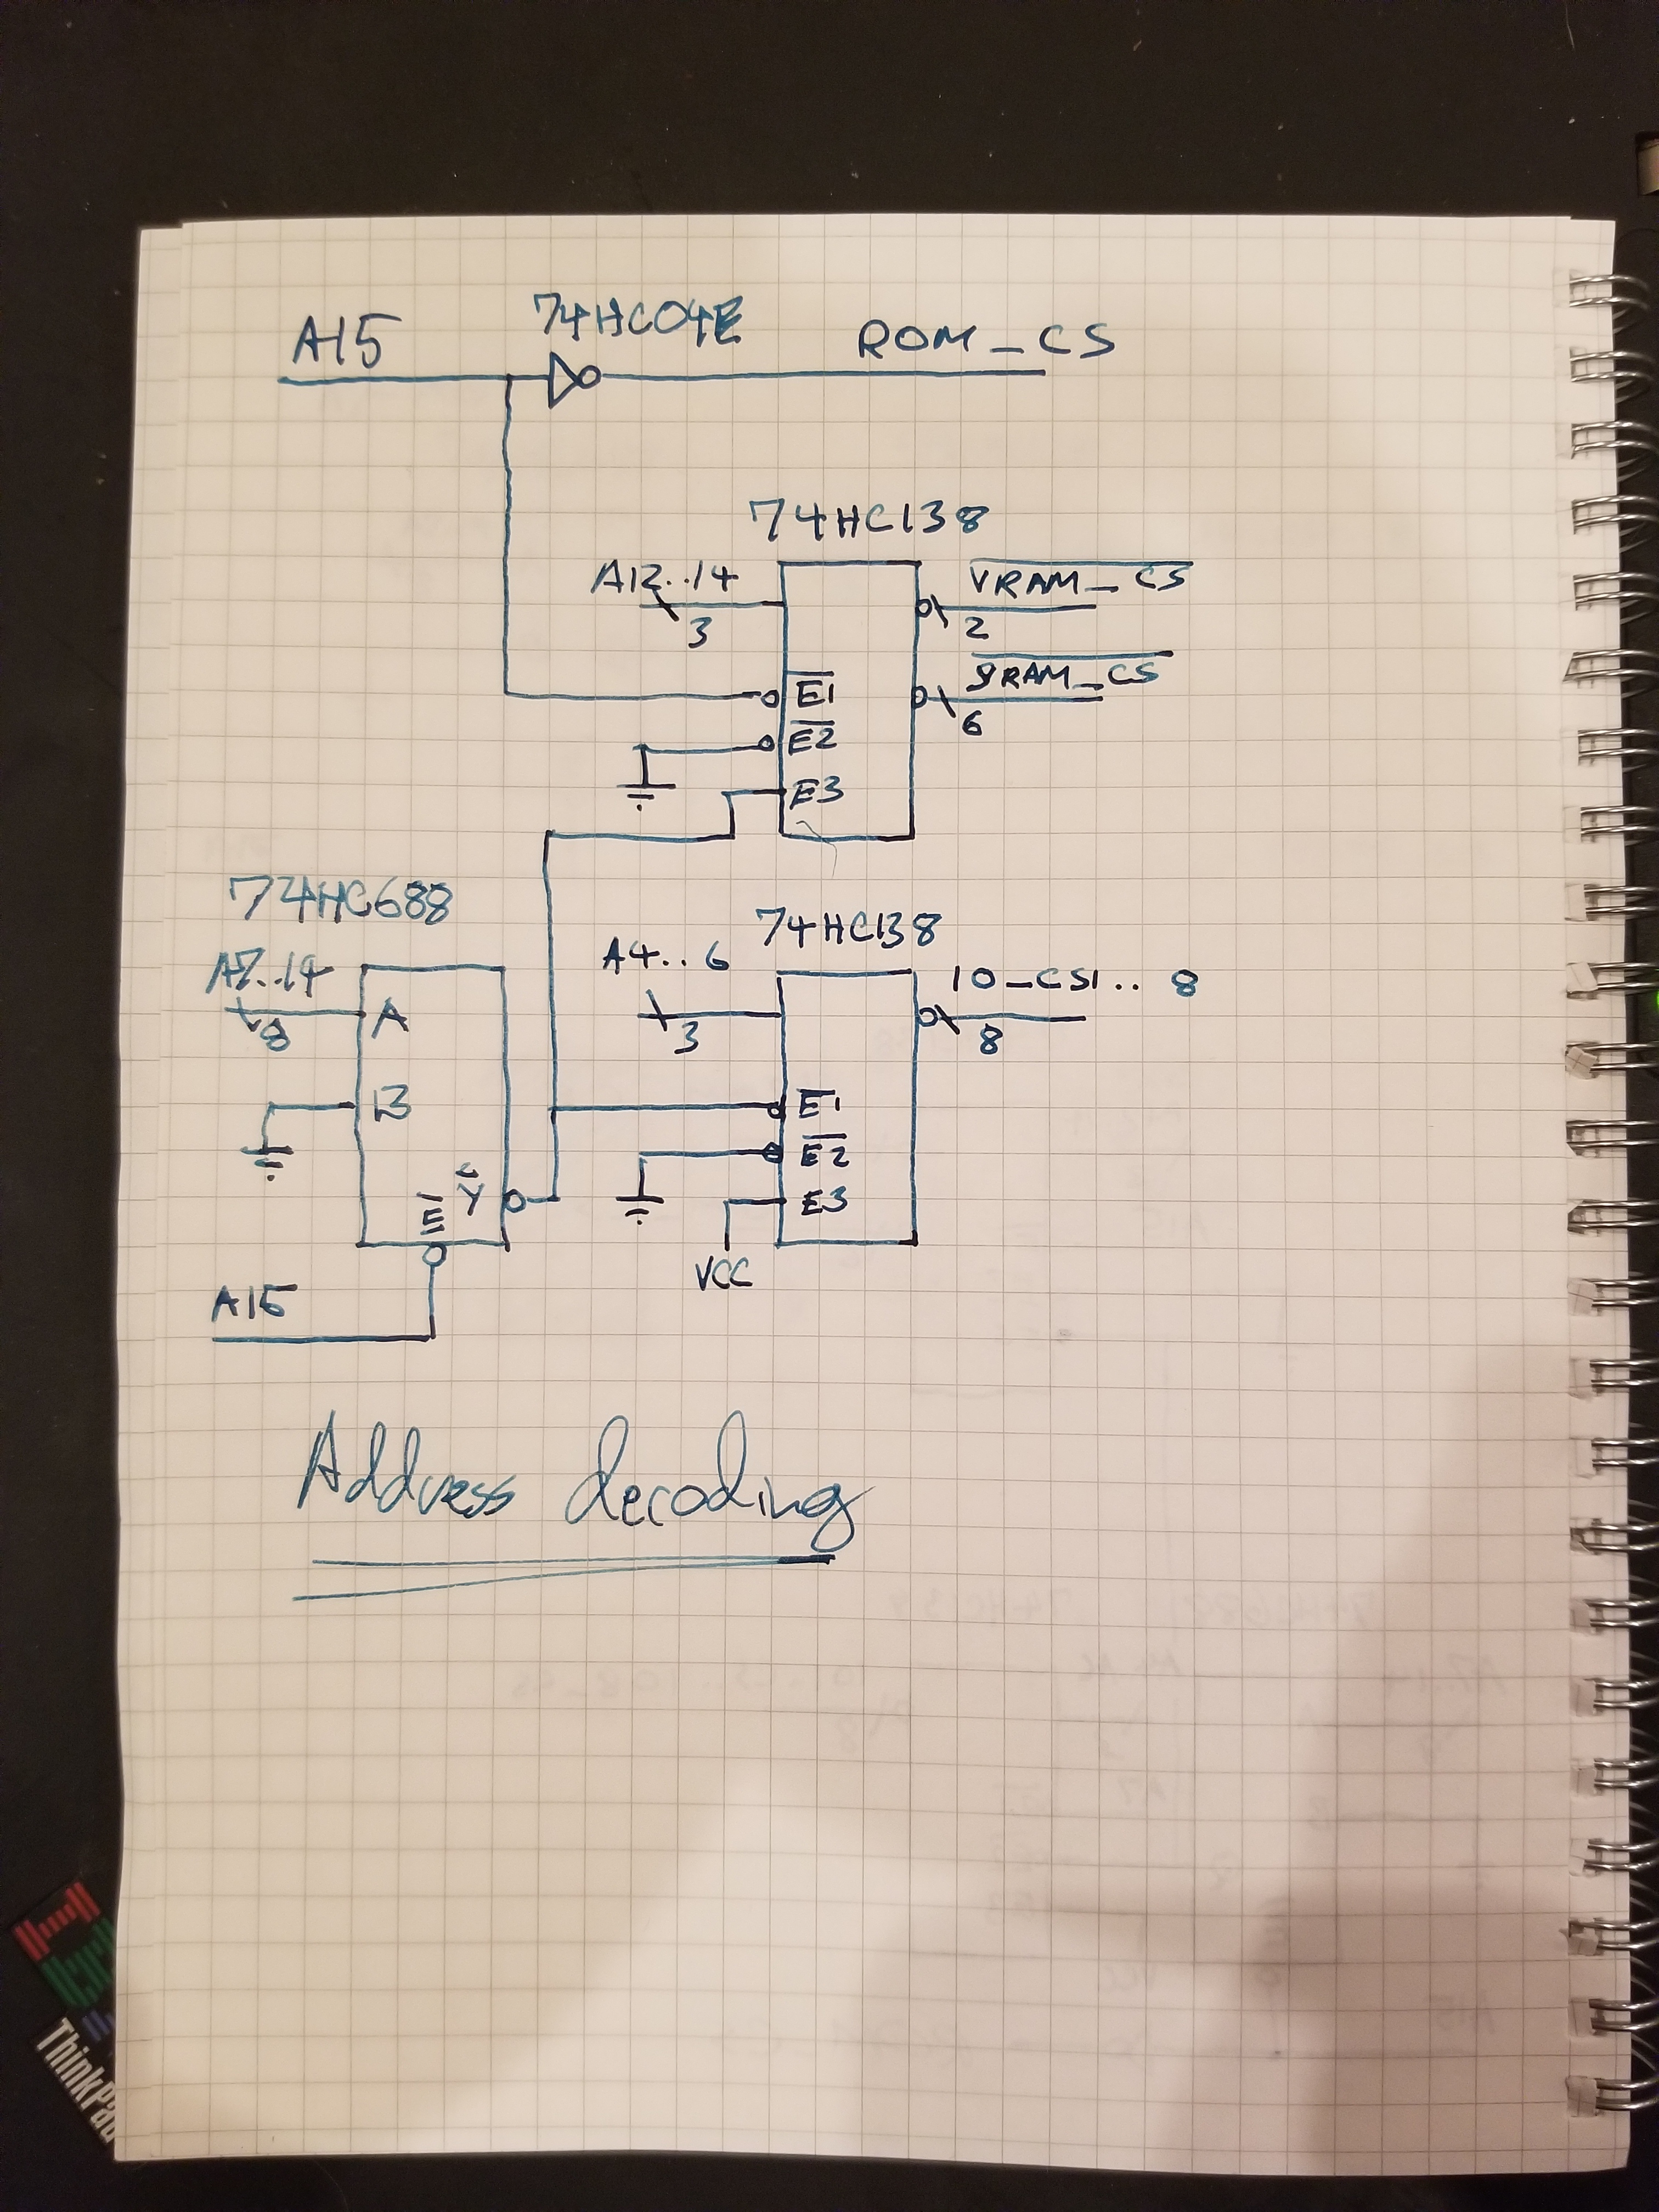 A15
74HC04E
ROM_CS
74HC138
A12..14
3
VRAM_CS
2
SRAM_CS
6
E1
E2
E3
74HC688
A7..14
8
A
B
Y
E
A15
74HC138
A4..6
3
IO_CS1..8
8
E1
E2
E3
VCC
Address decoding
ThinkPad